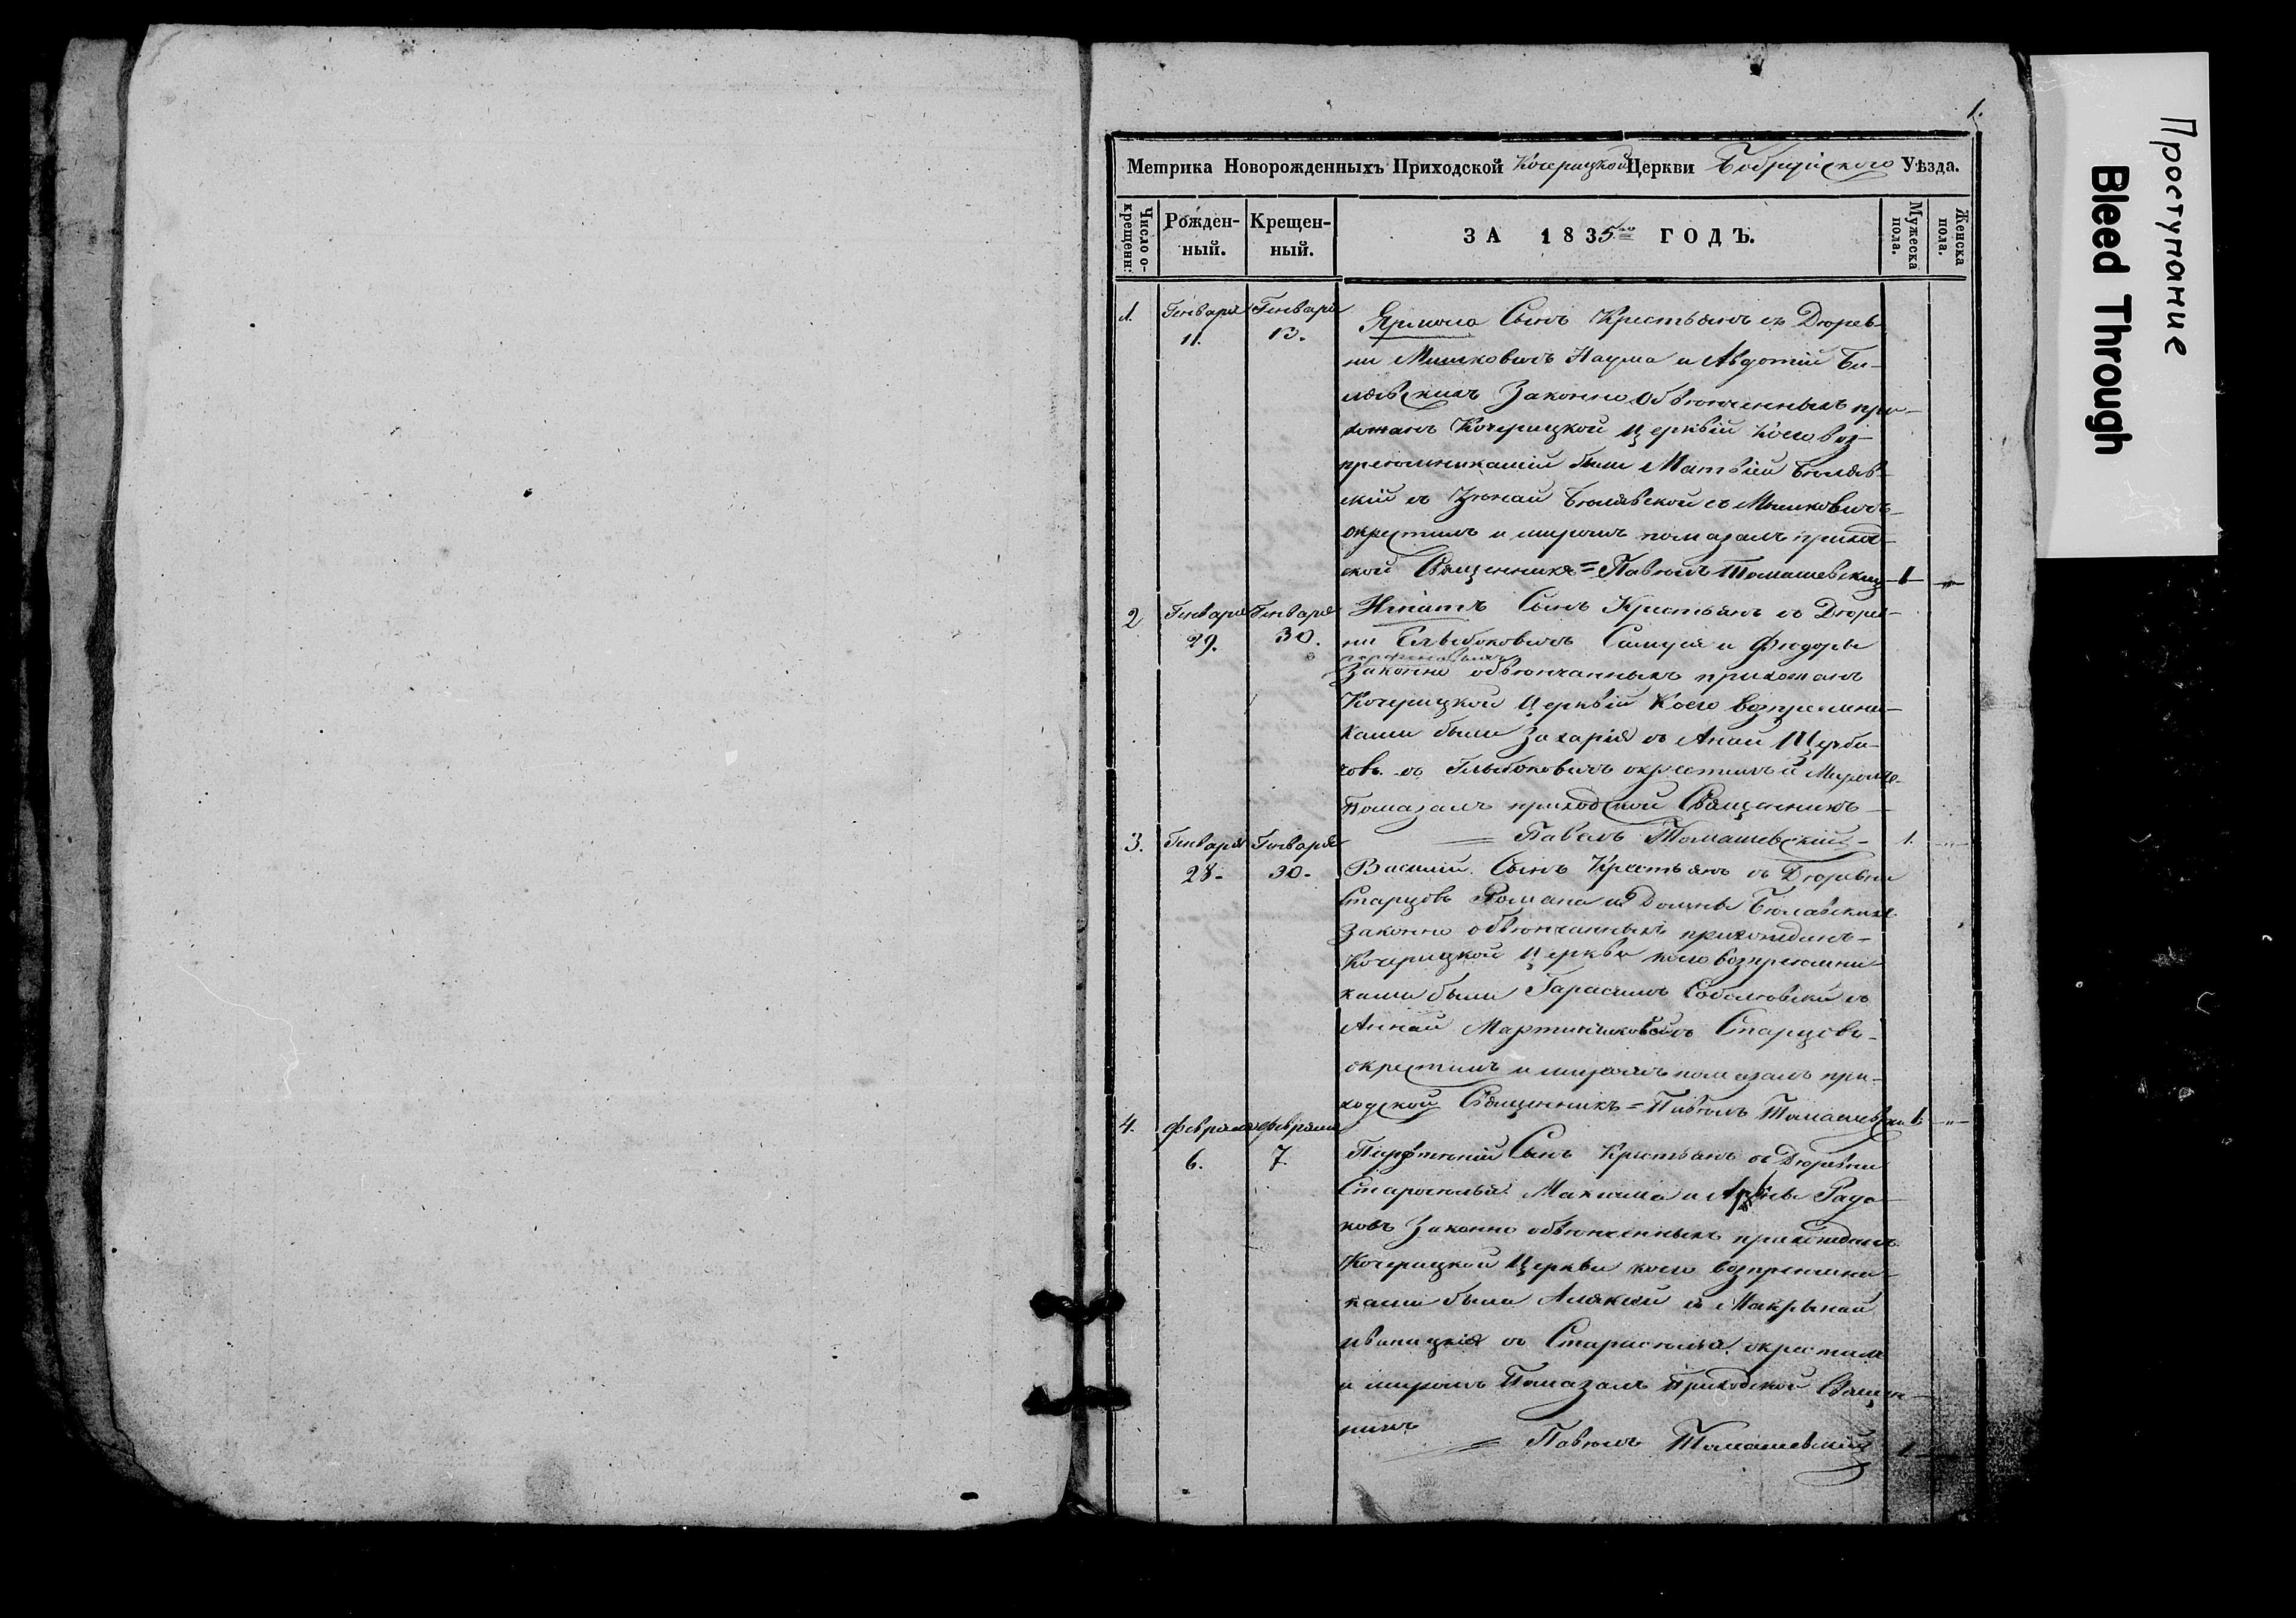 1.
Метрика Новорожденныхъ Приходской Кочерицкой Церкви Бобруйского Уѣзда.
Число о-
крещенн:
Рожден-
ный.
Крещен-
ный.
ЗА 1835го ГОДЪ.
Мужеска
пола.
Женска
пола.
1.
Генваря
11.
Генваря
13.
Ярмола Сынъ Крестьянъ съ Дюрев-
ни Мышковичъ Наума и Авдотіи Бѣ-
лявскихъ Законно Обвюнченныхъ при-
хожанъ Кочерицкой Церквіи Коего воз-
преюмникаміи были Матвіей Бюляв-
скій съ Бюлявской съ Мышковичъ
окрестилъ и миромъ помазалъ приход-
ской Священникъ = Павюлъ Томашевский 1 „
2
Генваря
29.
Генваря
30.
Игнатъ Сынъ Крестьянъ съ Дюрев-
ни Глыбоковичъ Самуся и Федоры
Законно обвюнчанныхъ прихожанъ
Кочерицкой Церквій Коего возпреюмни-
ками были Захарія съ Анай Щерба-
човъ съ Глыбоковичъ окрестилъ и Миромъ
Помазалъ приходской Священникъ
= Павелъ Томашевскій - 1. „
3.
Генваря
28.
Генваря
30.
Василій Сынъ Крестьянъ съ Дюревни
Старцовъ Романа и Домны Бюлявскихъ
Законно обвюнчанныхъ прихожданъ
Кочерицкой Церкви коего возпреюмни-
ками были Гарасимъ Соболювскій съ
Аннай Мартинчиковой съ Старцовъ
окрестилъ и миромъ помазалъ при-
ходской Священникъ = Павюлъ Томашевский 1 „
4.
Февраля
6.
Февраля
7.
Парфюній Сынъ Крестьянъ съ Дюревни
Староселья Максима и Рада-
ковъ Законно обвюнченныхъ прихожданъ
Кочерицкой Церкви коего возпреюмни-
ками были Алякский и Макрынай
Иваницкія съ Староселья окрестилъ
и миромъ Помазалъ Приходской Священ-
никъ
= Павюлъ Томашевский 1.
Проступание
Bleed Through